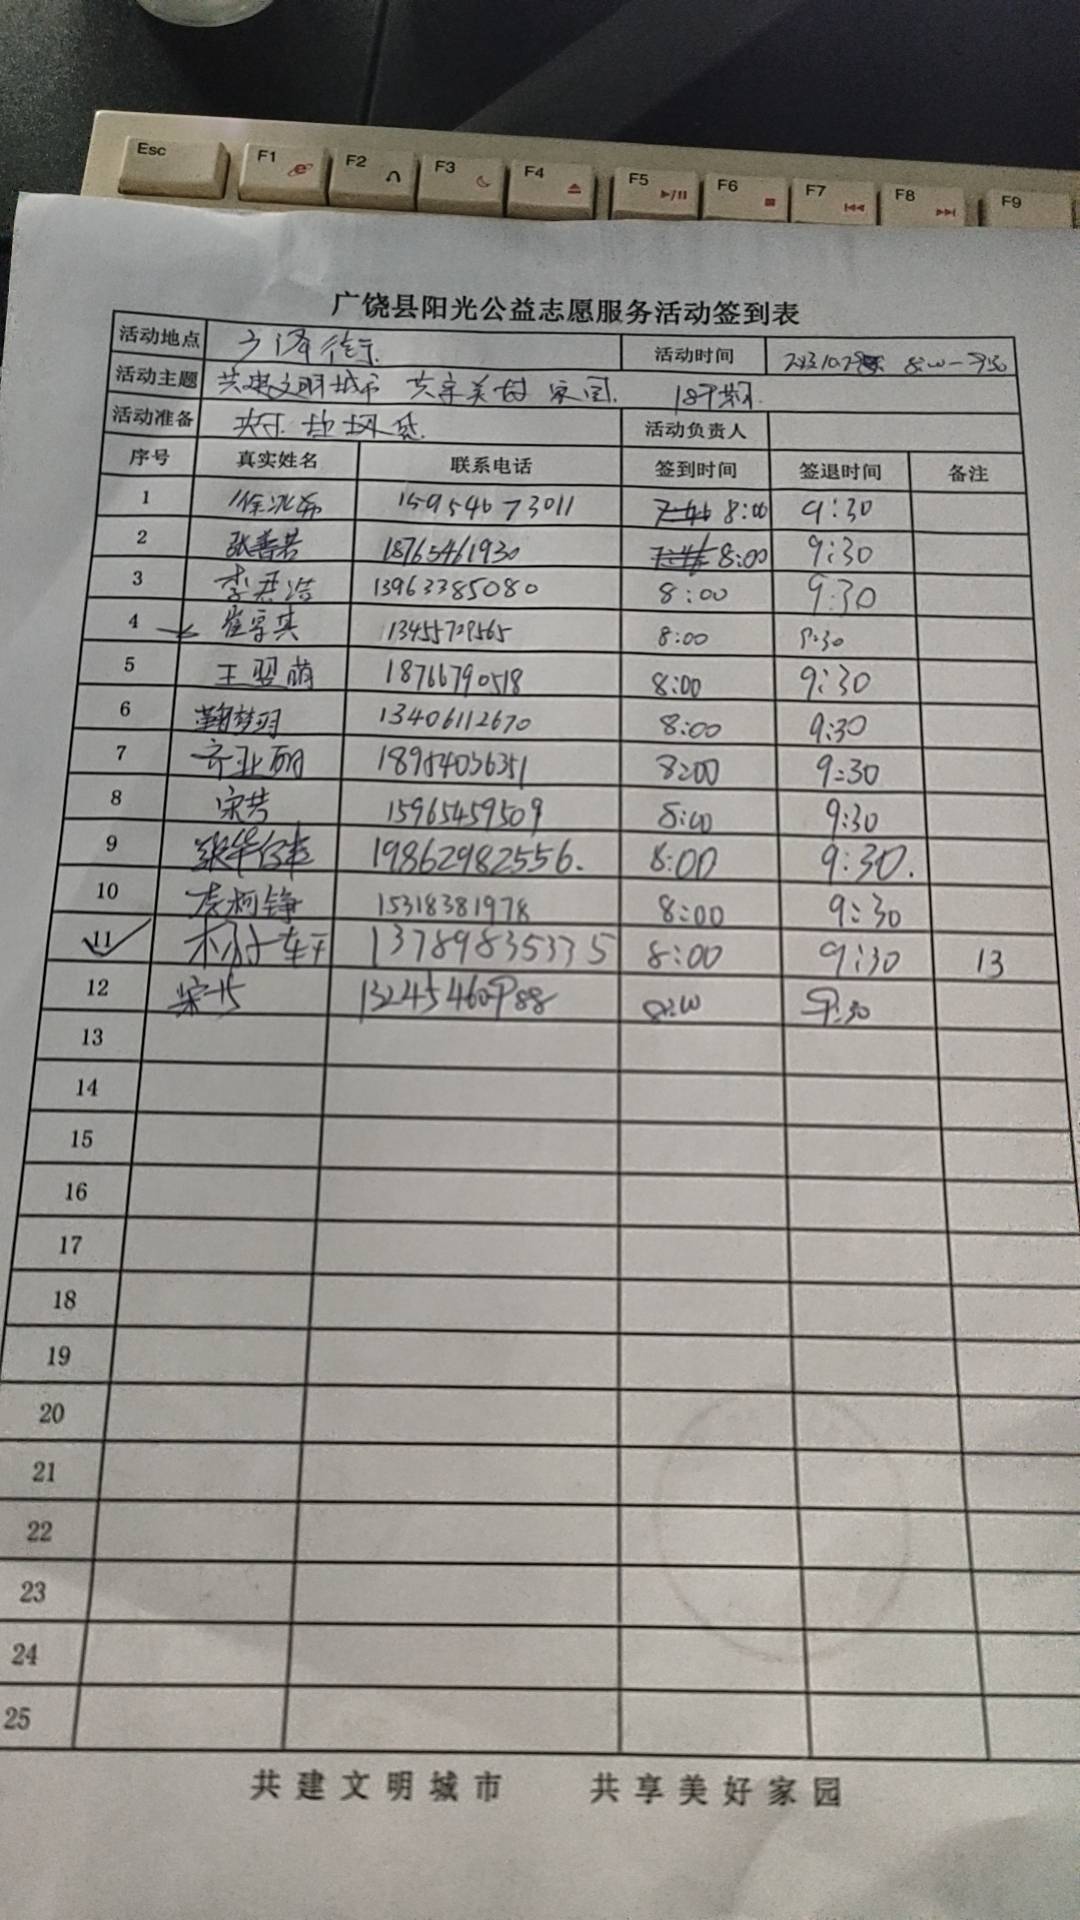 Esc F1 F2 F3 F4 F5 F6 F7 F8 F9
广饶县阳光公益志愿服务活动签到表
活动地点 活动时间 8:00-9:30
活动主题 共建文明城市 共享美好家园 189期
活动准备 夹子 垃圾袋 活动负责人
序号 真实姓名 联系电话 签到时间 签退时间 备注
1 15954673011 8:00 9:30
2 张善若 18765461930 8:00 9:30
3 李君浩 13963385080 8:00 9:30
4 崔宇其 13455709565 8:00 9:30
5 王翌萌 18766790518 8:00 9:30
6 8:00 9:30 13406112670
7 齐亚丽 18954036351 8:00 9:30
8 宋芳 15965459509 8:00 9:30
9 19862982556. 8:00 9:30.
10 李柯铮 15318381978 8:00 9:30
11 13789835335 8:00 9:30 13
12 13245460988 8:00 9:30
13
14
15
16
17
18
19
20
21
22
23
24
25
共建文明城市 共享美好家园